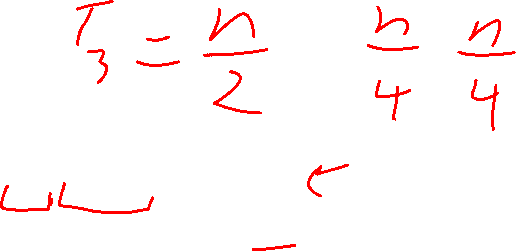 T₃ = n/2 n/4 n/4